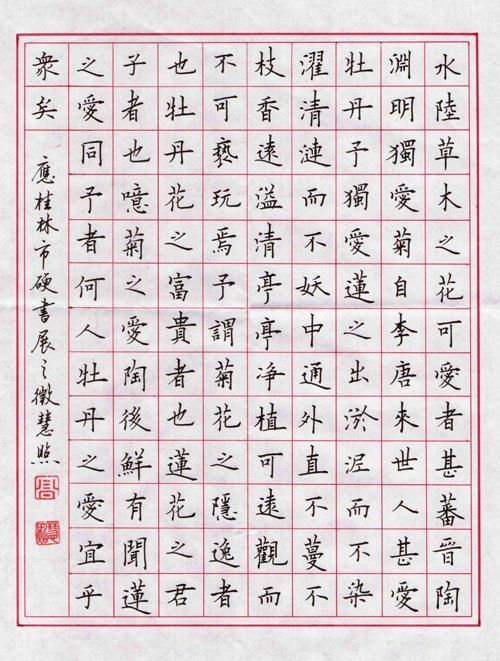 水陸草木之花可愛者甚蕃晉陶
淵明獨愛菊自李唐來世人甚愛
牡丹予獨愛蓮之出淤泥而不染
濯清漣而不妖中通外直不蔓不
枝香遠溢清亭亭凈植可遠觀而
不可褻玩焉予謂菊花之隱逸者
也牡丹花之富貴者也蓮花之君
子者也噫菊之愛陶後鮮有聞蓮
之愛同予者何人牡丹之愛宜乎
衆矣
應桂林市硬書展之徵慧照